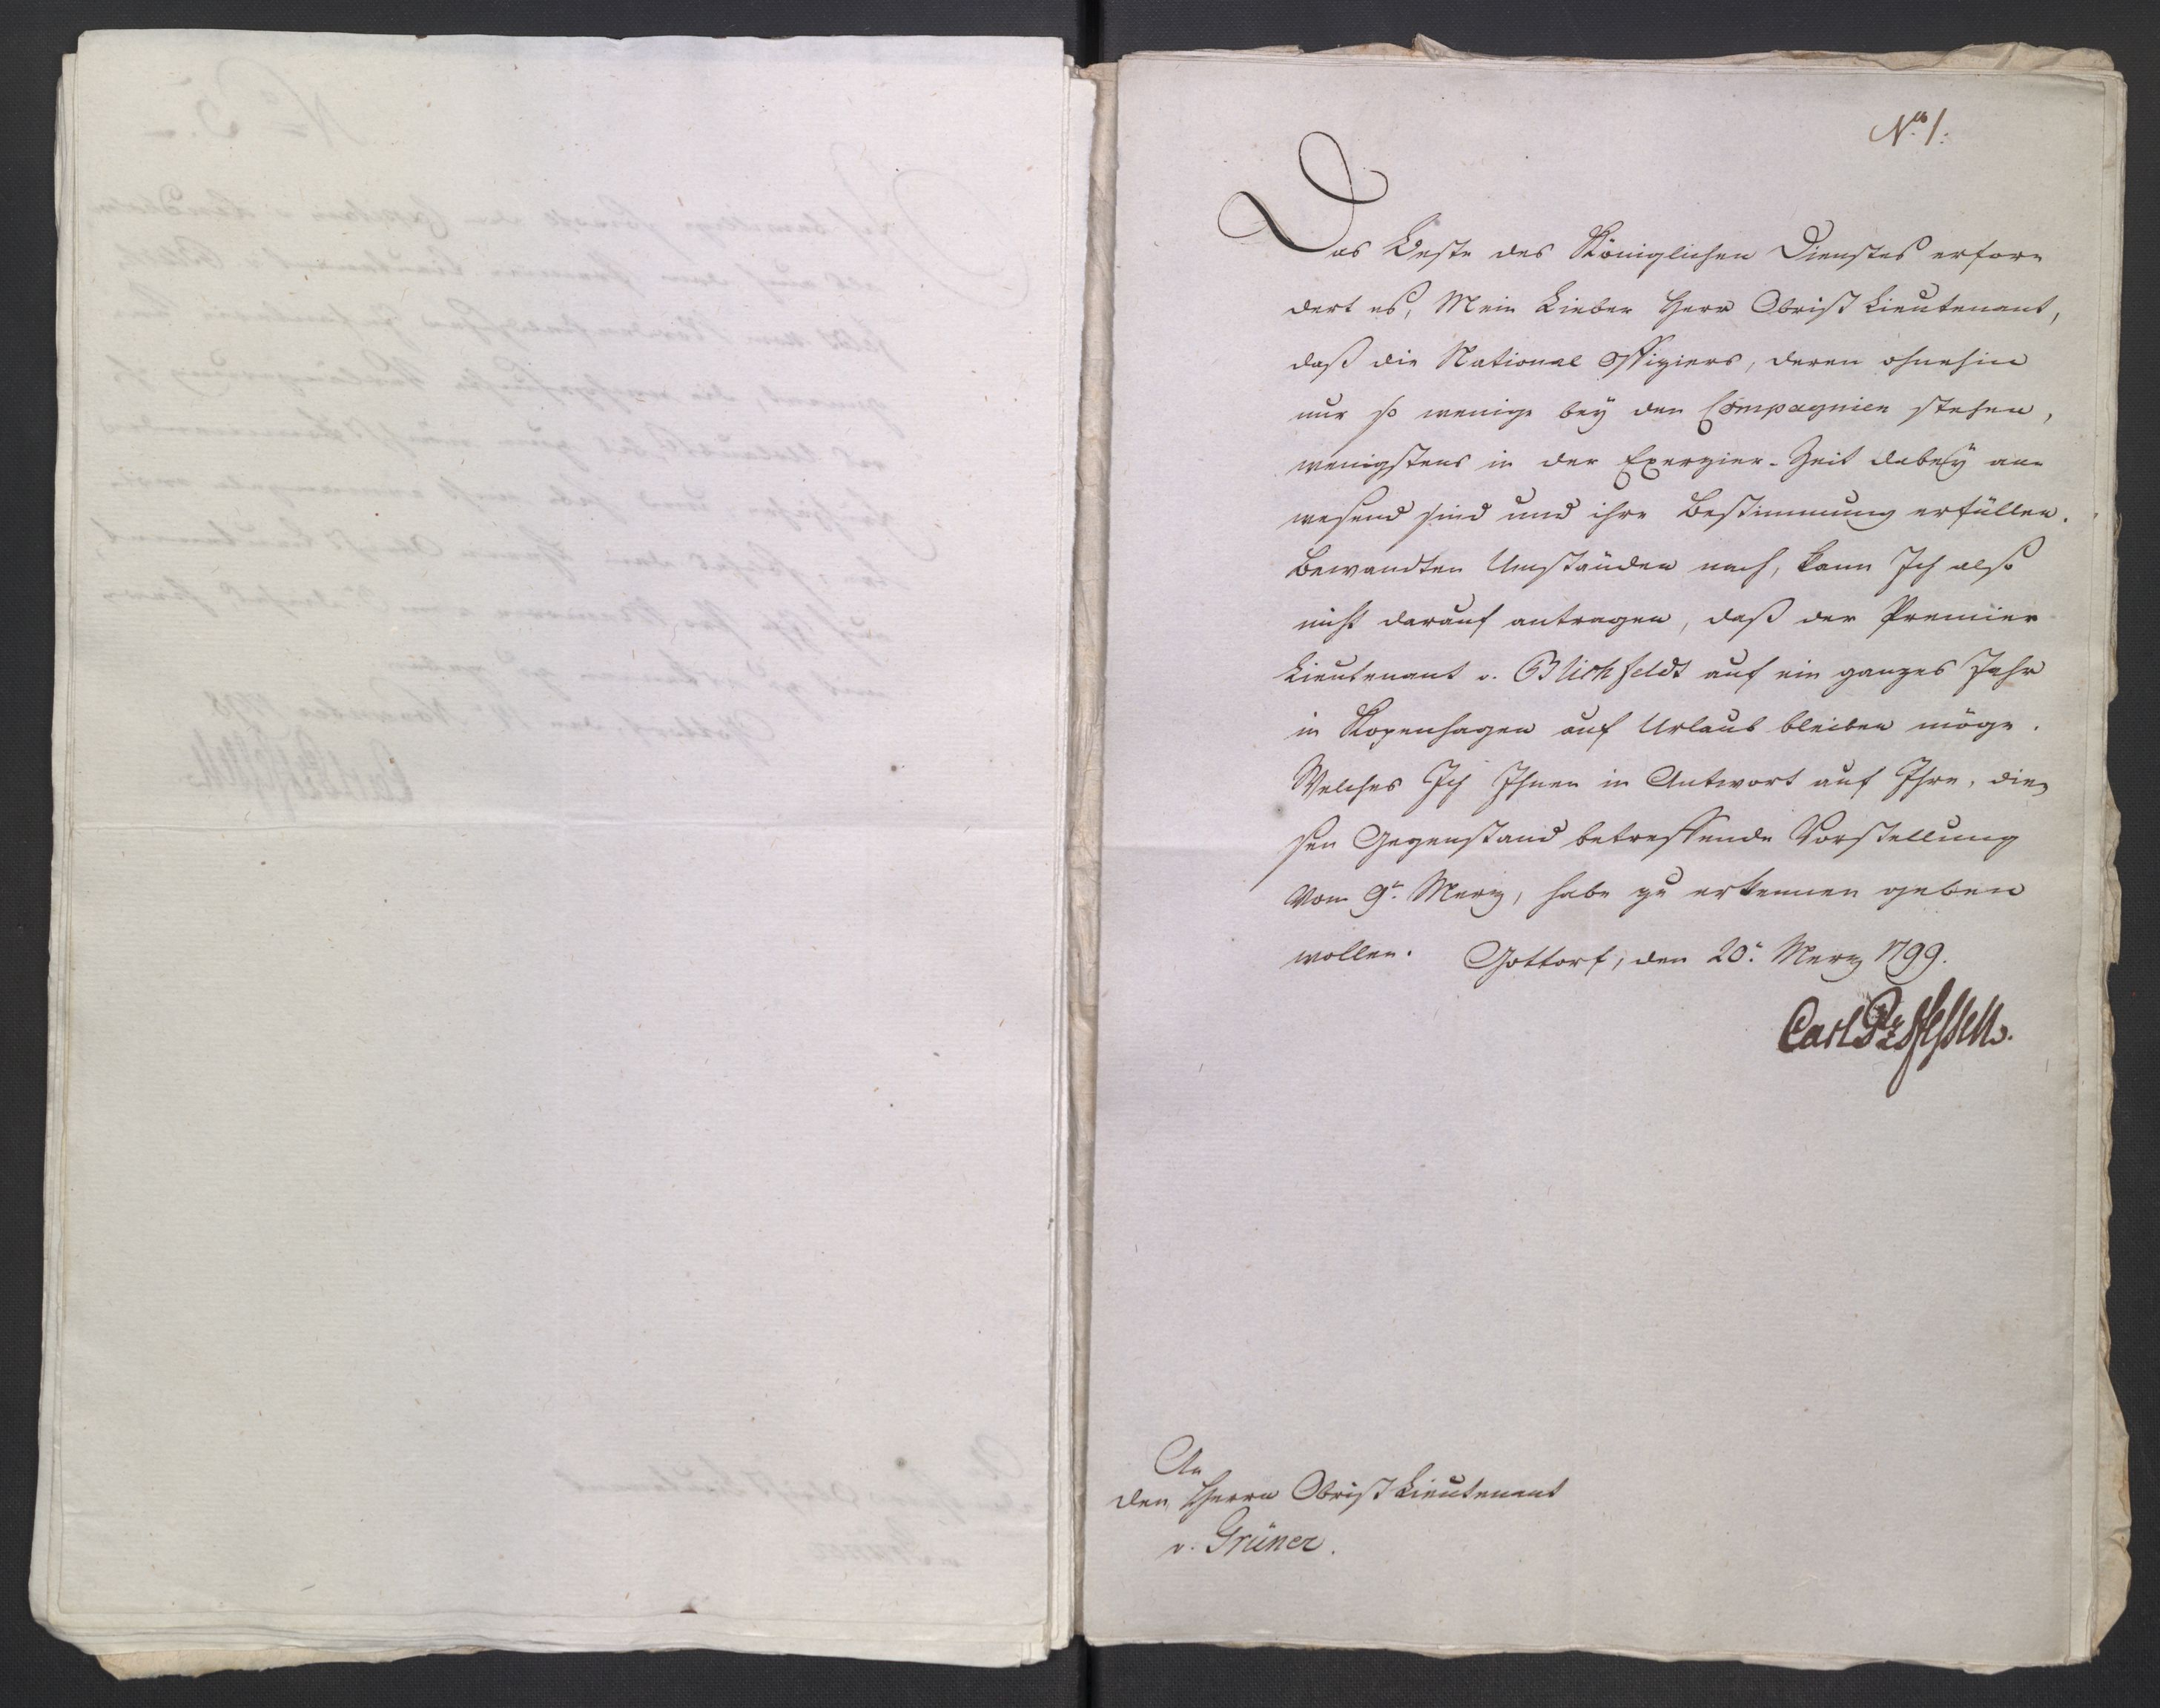 No 1.
Das Beste des Königlichen Dienstes erfor-
dert es, Mein Lieber Herr Obrist Lieutenant,
daß die National Offiziers, deren ohnehin
nur so wenige bey den Compagnien stehen,
wenigstens in der Exerzier-Zeit dabey an-
wesend sind und ihre Bestimmung erfüllen.
Bewandten Umständen nach, kann Ich also
nicht darauf antragen, daß der Premier
Lieutenant v. Blichfeldt auf ein ganzes Jahr
in Kopenhagen auf Urlaub bleiben möge.
Welches Ich Ihnen in Antwort auf Ihre, die-
sen Gegenstand betreffende Vorstellung
vom 9n. Merz, habe zu erkennen geben
wollen. Gottorf, den 20n. Merz 1799.
Carl PzHessen.
An
den Herrn Obrist Lieutenant
v. Grüner.